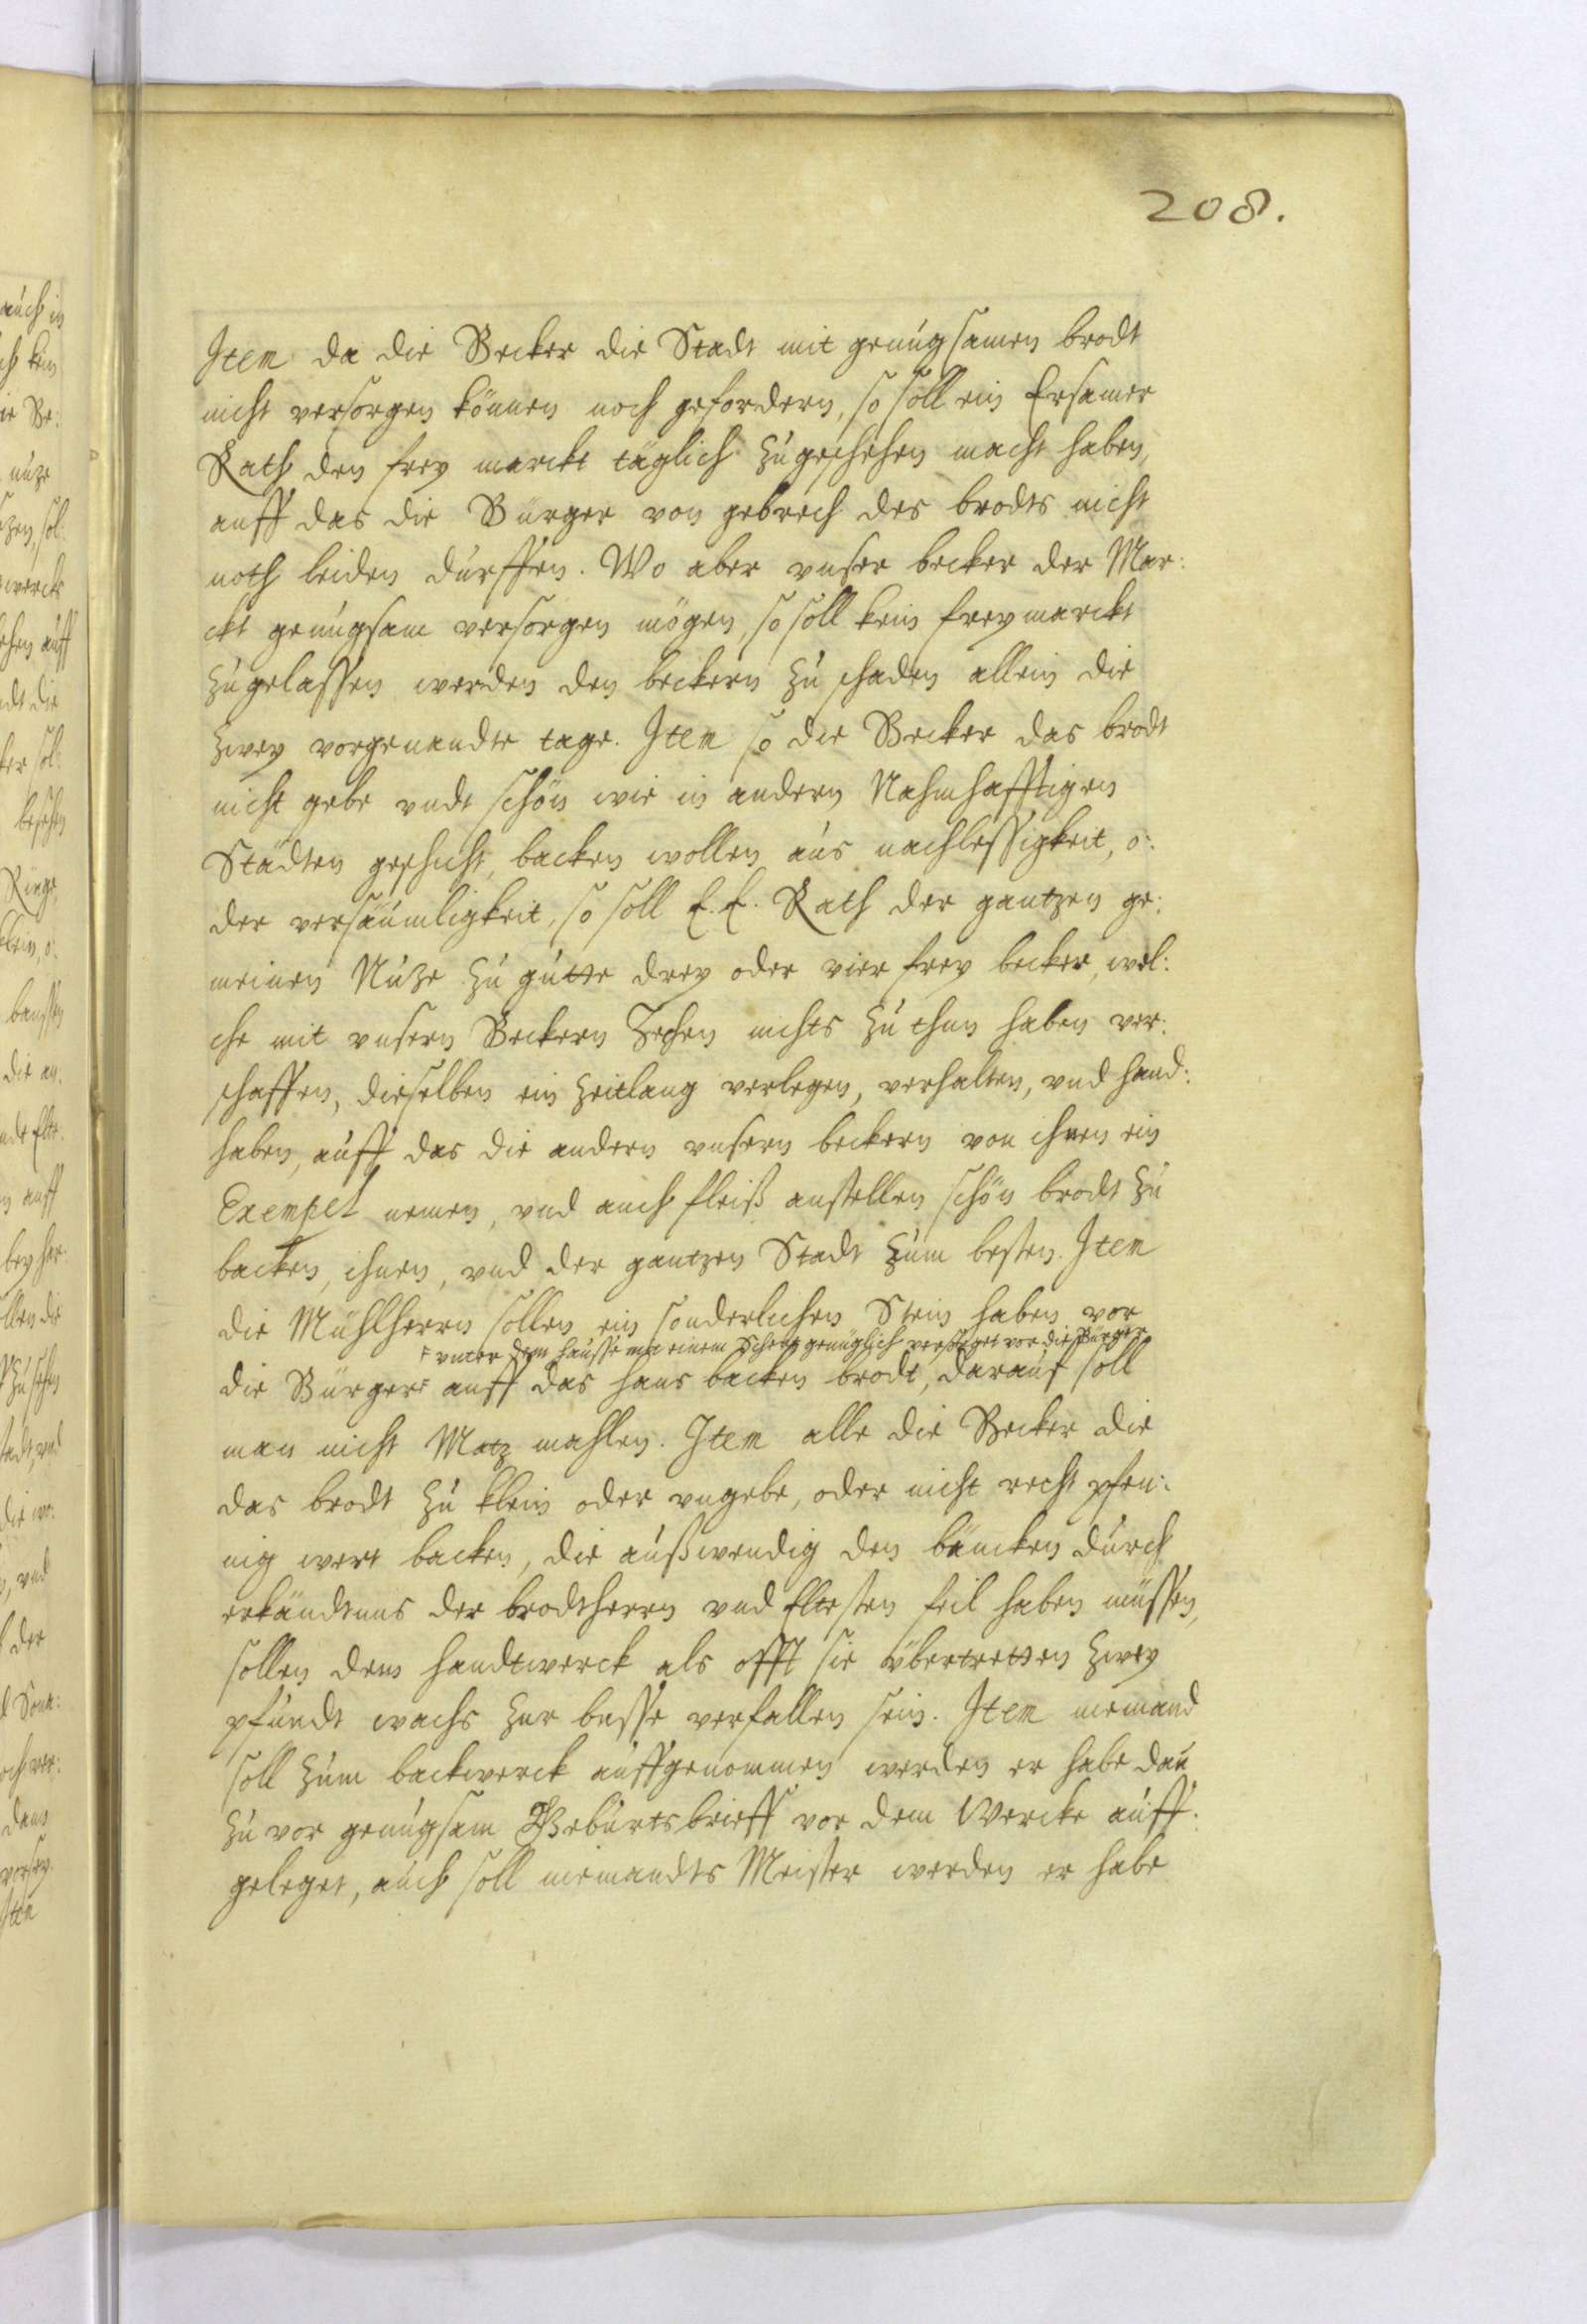 208.
Item da die Becker die Stadt mit genugsamen brodt
nicht versorgen können noch gefordern, so soll ein Ersamer
Rath den frey marckt täglich zugeschehen macht haben,
auff das die Bürger von gebrech des brodts nicht
noth leiden dürffen. Wo aber unser becker der Mar:
ckt genugsam versorgen mögen, so soll kein freymarckt
zugelassen werden den beckern zu schaden allein die
zwey vorgenandte tage. Item so die Becker das brodt
nicht gebe undt schön wie in andern Nahmhafftigen
Städten geschicht, backen wollen aus nachlessigkeit, o:
der versäumligkeit, so soll E. E. Rath der gantzen ge:
meinen Nuze zu gutte drey oder vier frey becker, wel:
che mit unsern Beckern Zechen nichts zu thun haben ver:
schaffen, dieselben ein zeitlang verlegen, verhalten, und hand:
haben, auff das die andern unsern beckern von ihnen ein
Exempel nemen, und auch fleiß anstellen schön brodt zu
backen, ihnen, und der gantzen Stadt zum besten. Item
die Mühlherrn sollen ein sonderlichen Stein haben vor
unter dem hausse mit einem genüglich vor die Bürger
die Bürger auff das haus backen brodt, darauf soll
man nicht Matz mahlen. Item alle die Becker die
das brodt zu klein oder ungebe, oder nicht recht pfen:
nig wert backen, die außwendig den bäncken durch
erkändtnus der brodtherrn und Eltesten feil haben müssen,
sollen dem handtwerck als offt sie übertretten zwey
pfundt wachs zur busse verfallen sein. Item niemand
soll zum backwerck auffgenommen werden er habe dan
zuvor genugsam Geburtsbrieff vor dem Wercke auff:
geleget, auch soll niemandts Meister werden er habe